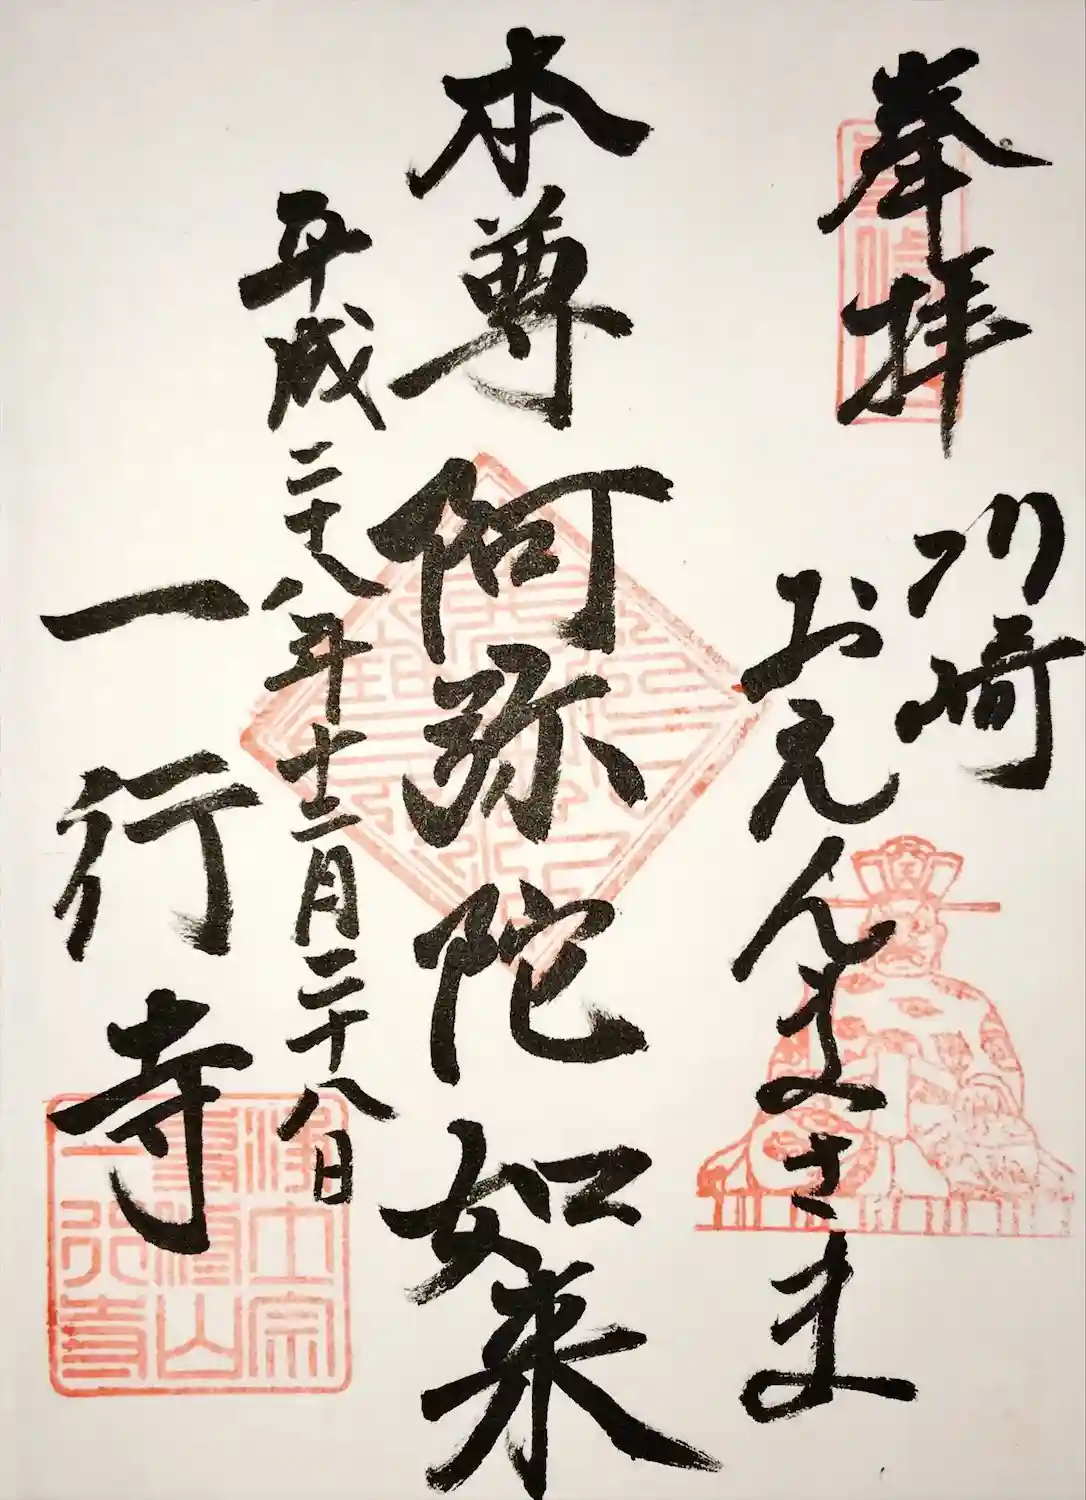 奉拝
川崎
おえんまさま
本尊
阿弥陀如来
平成二十八年十二月二十八日
一行寺
浄土宗
専修山
一行寺